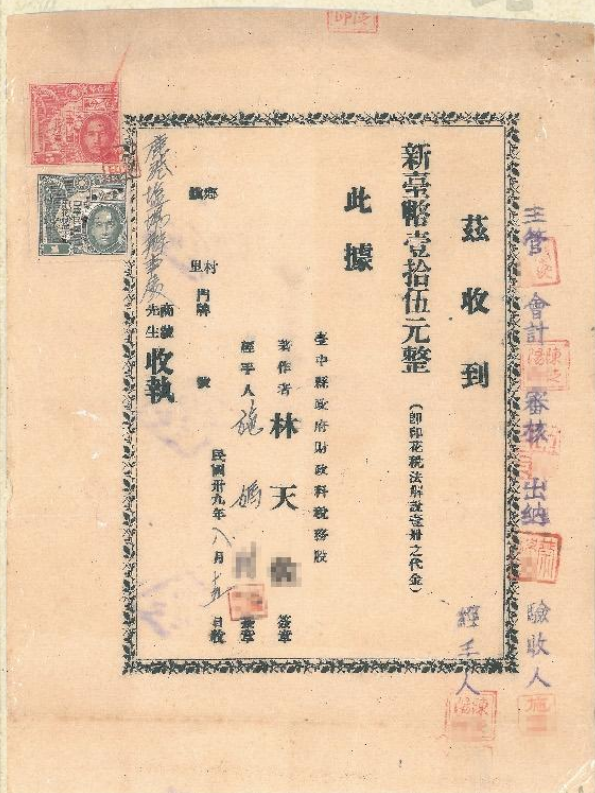 主管
會計
審核
出納
驗收人
經手人
茲收到
新臺幣壹拾伍元整
(即印花稅法解說壹冊之代金)
此據
臺中縣政府財政科稅務股
著作者 林天 簽章
經手人 施 簽章
民國卅九年八月十五日收
鄉鎮 村里 門牌 號
鹿港 辦事處 商號先生 收執